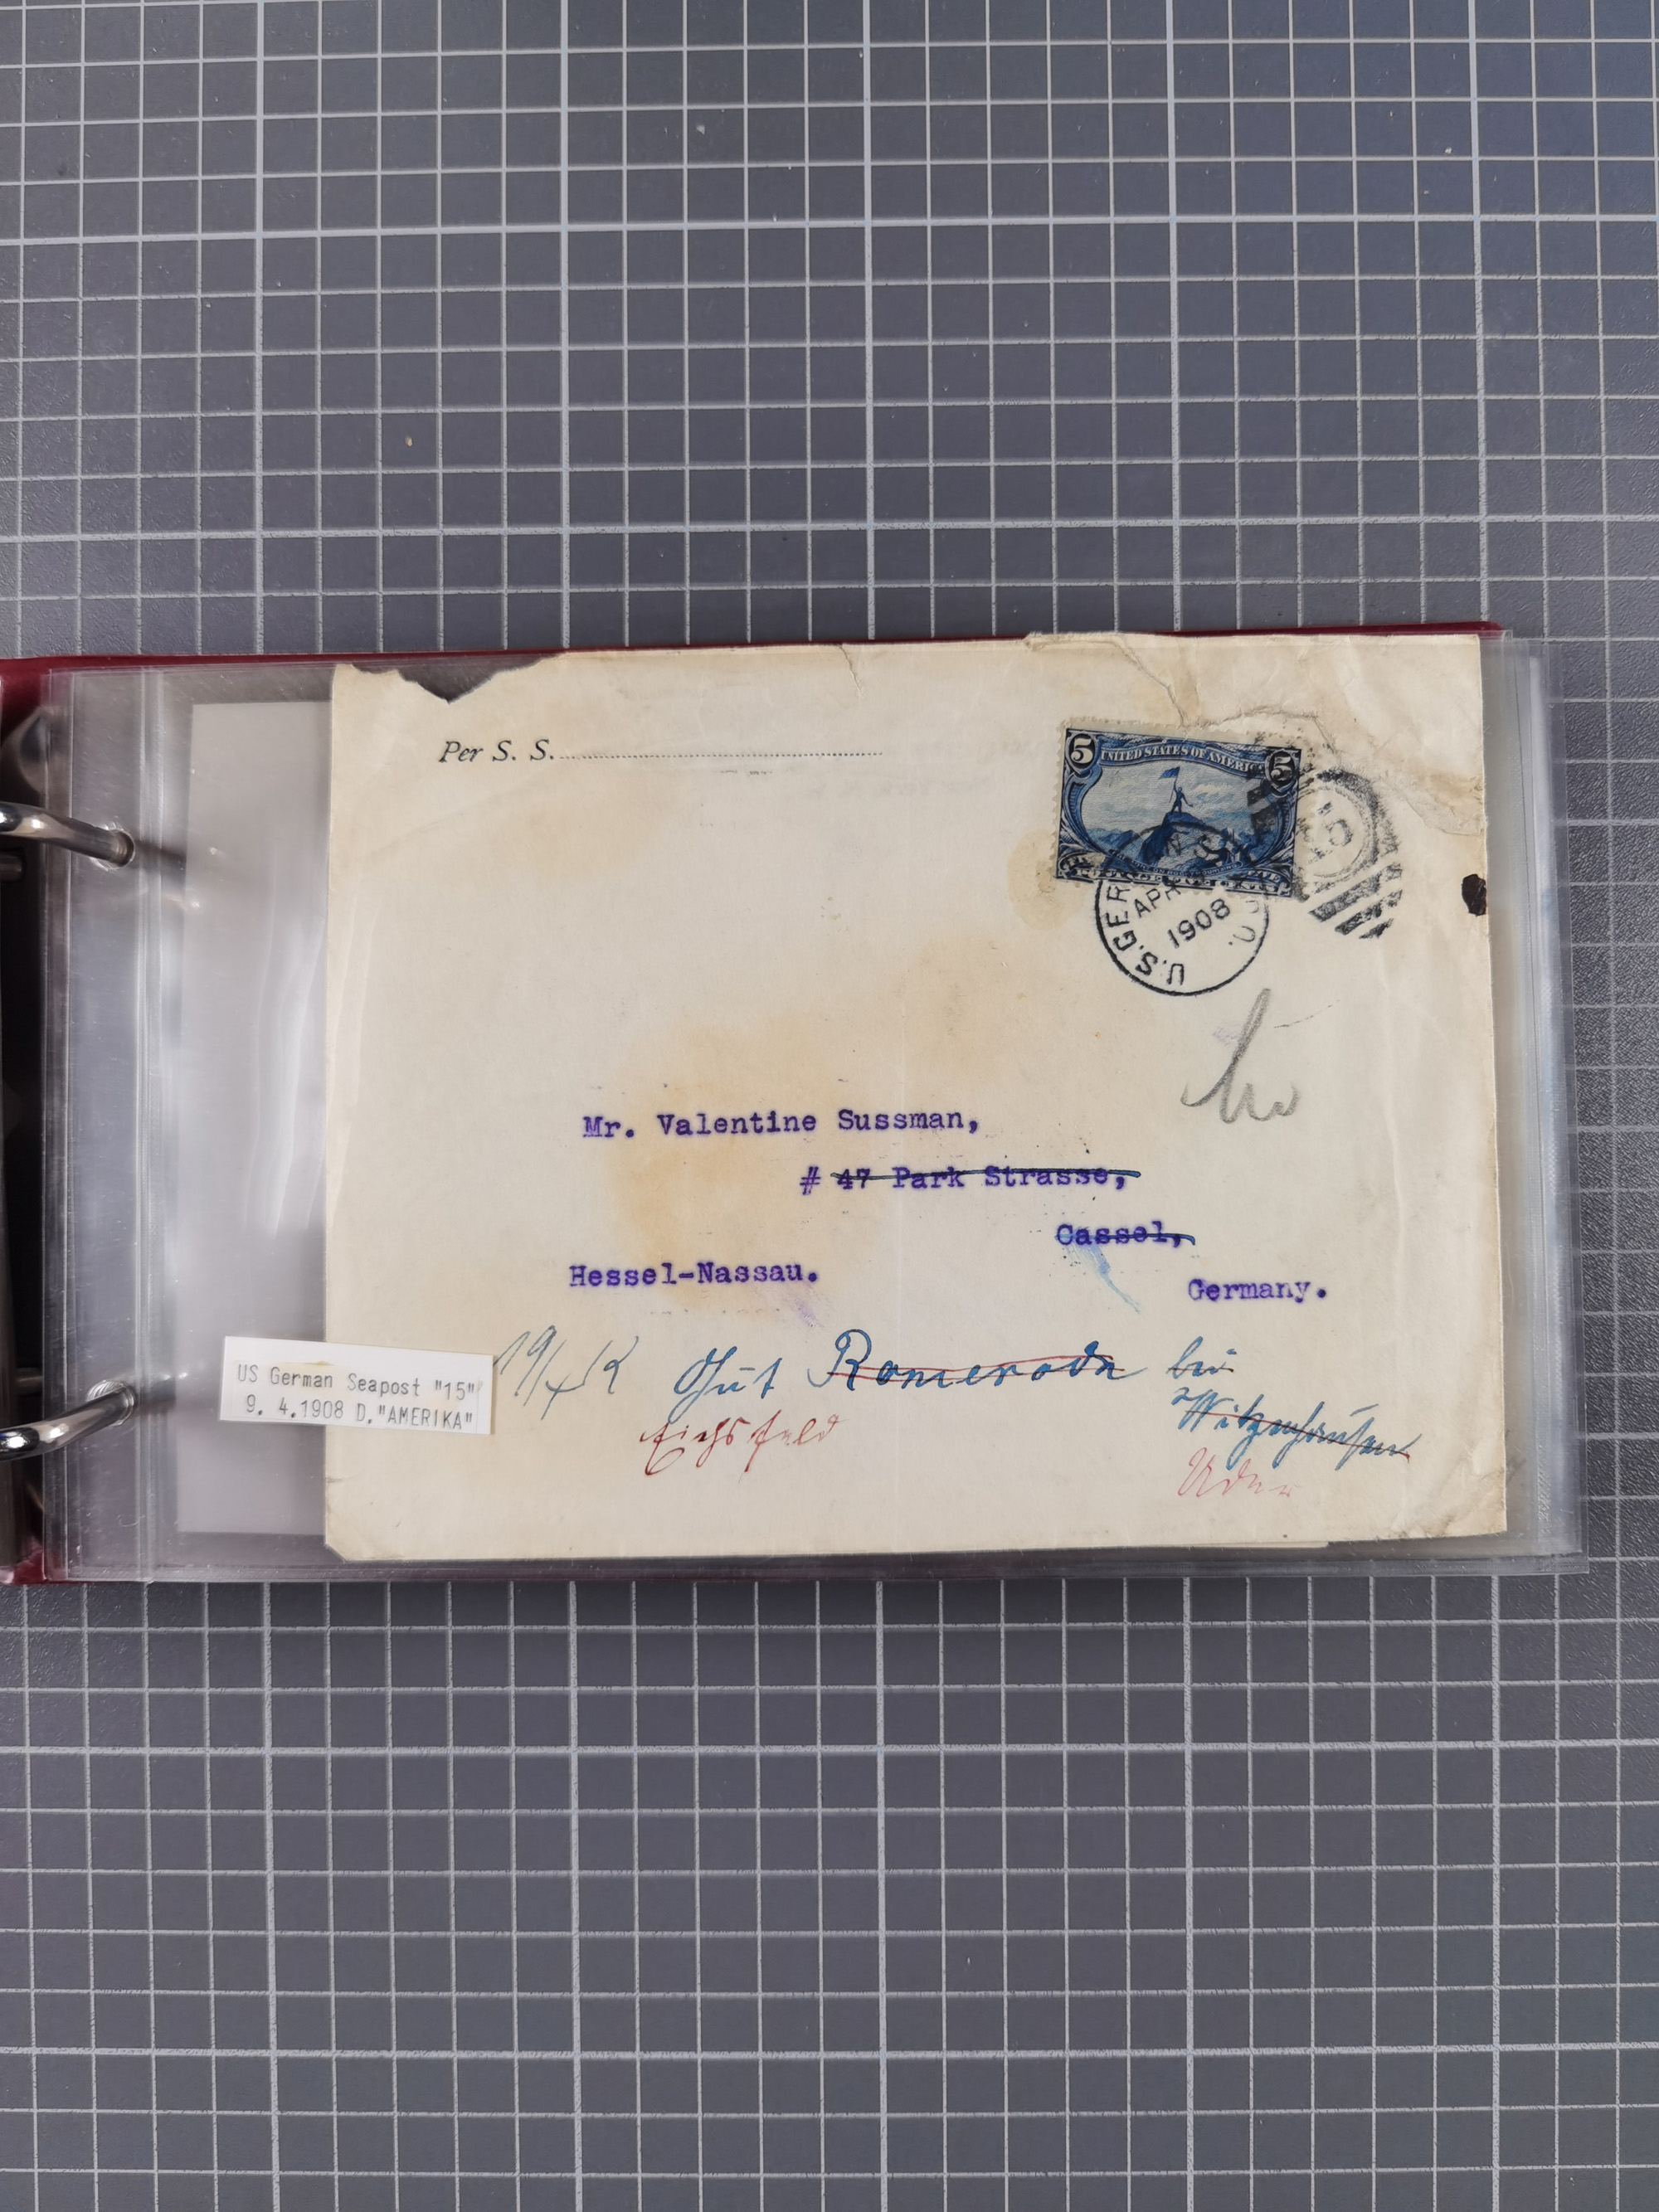 Per S. S.
5 UNITED STATES OF AMERICA 5
15
U.S. GER
APR
1908
Mr. Valentine Sussman,
# 47 Park Strasse,
Cassel,
Hessel-Nassau.
Germany.
19/4 K Gut Romerode bei
Witzenhausen
Eichsfeld
Uder
US German Seapost "15"
9. 4.1908 D."AMERIKA"